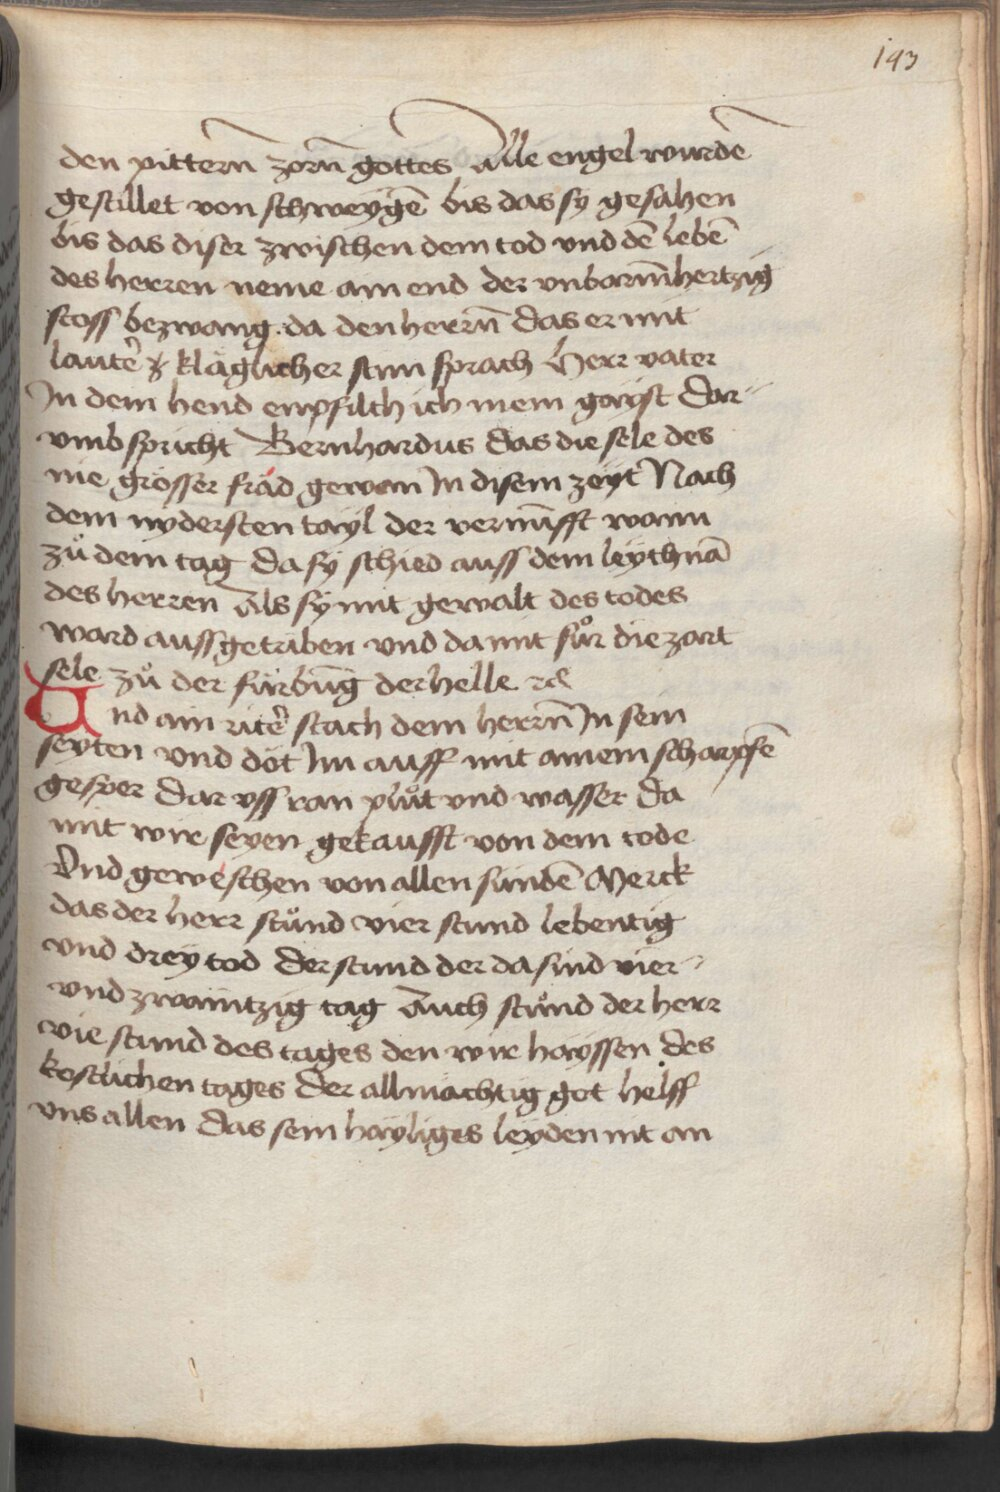 193
den pittern̄ zorn̄ gottes Alle engel wurdē
gestillet von schweygē bis das sy gesahen
bis das diser zwischen dem tod vnd dē lebē
des herren neme ain end der vnbarm̄hertzig
stoss bezwang da den herrn̄ das er mit
lautē & kläglicher stim sprach Herr vater
In dein hend empfilch ich mein gayst Dar
vmb spricht Bernhardus das die sele des
nie grösser fräd gewan In disem zeyt Nach
dem nydersten tayl der vernūfft wann
zů dem tag da sy schied auss dem leychnā
des herren Als sy mit gewalt des todes
ward auss getriben vnd da mit fůr die zart
sele zů der fürbūg der helle
Vnd ain ritē stach dem herrn̄ In sein
seyten vnd döt Im auff mit ainem scharpfē
gesper Dar vss ran plůt vnd wasser da
mit wir seyen getaufft von dem tode
Vnd geweschen von allen sündē Merck
das der herr stůnd vier stund lebentig
vnd drey tod Der stund der da sind vier
vnd zwaintzig tag Auch stůnd der herr
vie stund des tages den wir hayssen des
kostlichen tages Der allmächtig got helff
vns allen das sein hayliges leyden nit an